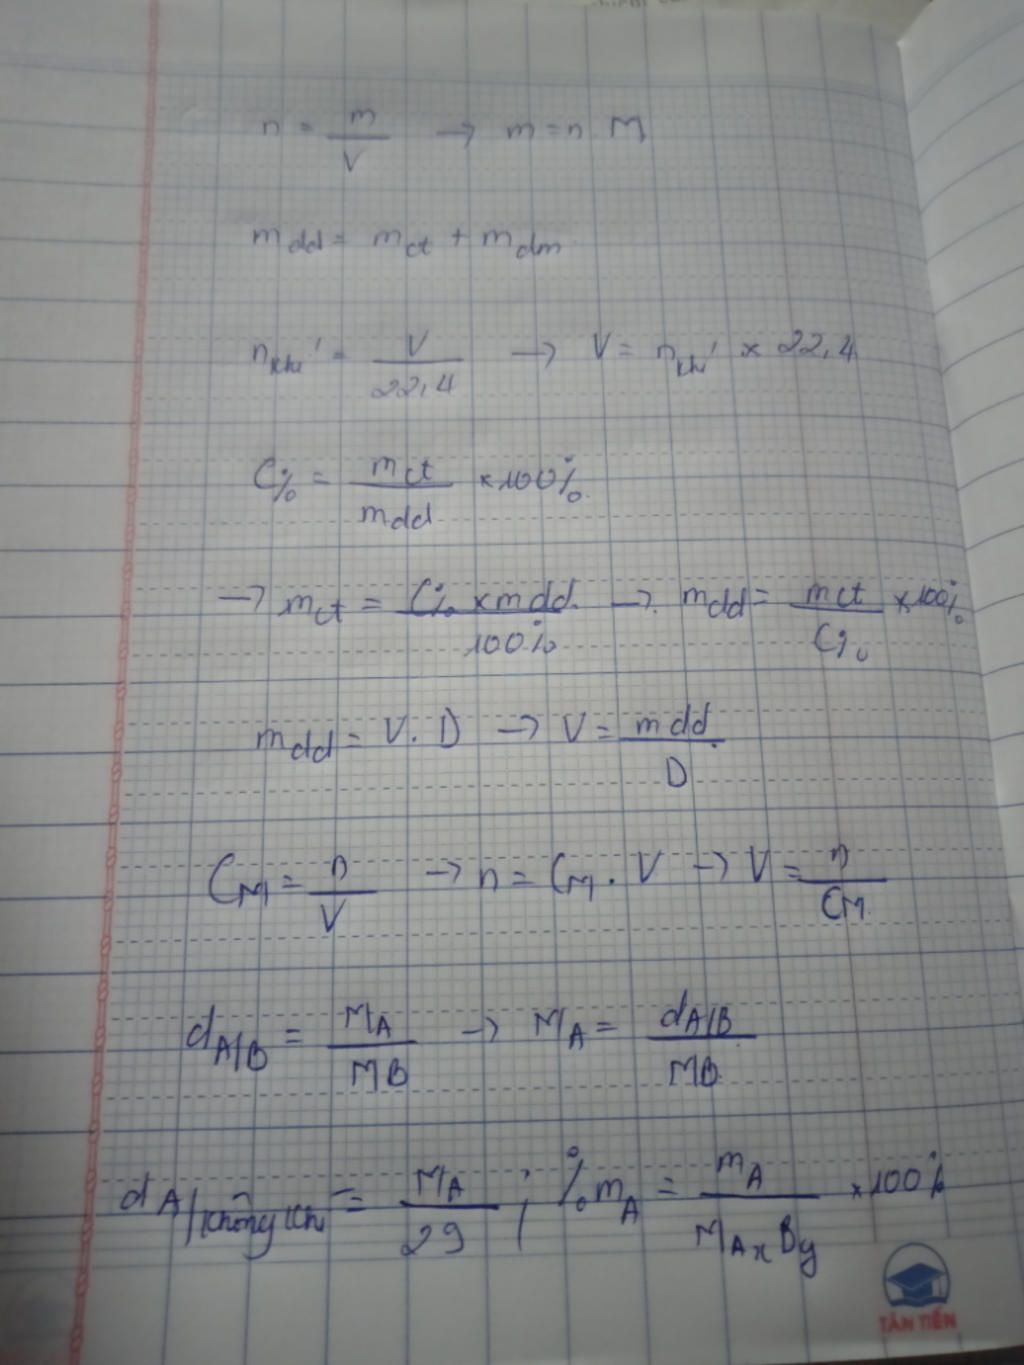 n = m/V → m = n M
mdd = mct + mdm
nkhí = V/22,4 → V = nkhí × 22,4
C% = mct/mdd × 100%
→ mct = C% × mdd/100% → mdd = mct/C% × 100%
mdd = V. D → V = mdd/D
CM = n/V → n = CM . V → V = n/CM
dA/B = MA/MB → MA = dA/B/MB
dA/không khí = MA/29 ; %mA = mA/MAxBy × 100%
TÂN TIẾN